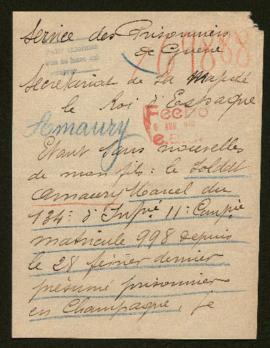 Service des Prisonniers
de Guerre
Secrétariat de Sa Majesté
le Roi d'Espagne
Amaury
Etant sans nouvelles
de mon fils : le Soldat
Amaury Marcel du
134e d'Infrie 11e Campie
matricule 998 depuis
le 28 février dernier
présumé prisonnier
en Champagne, je